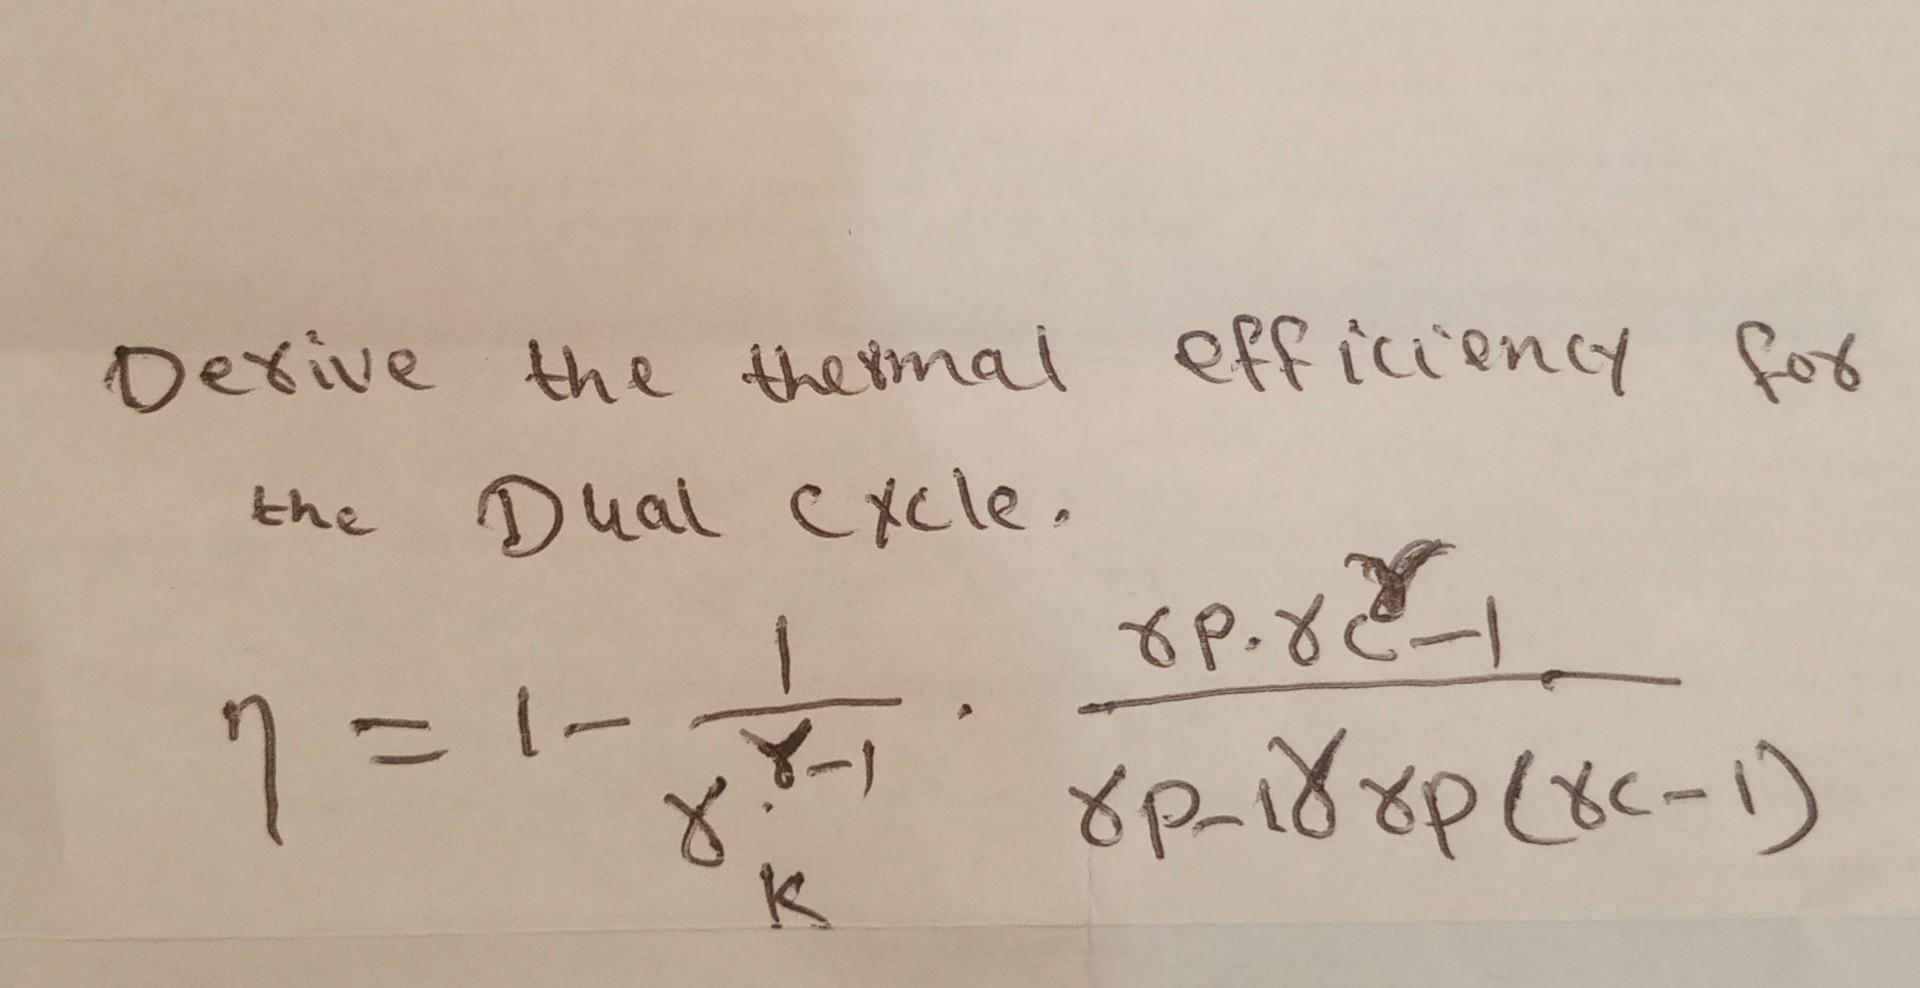 Derive the thermal efficiency for
the Dual cycle.
η = 1 - \frac{1}{r_k^{γ-1}} · \frac{rp.rc^γ-1}{rp-1γrp(rc-1)}